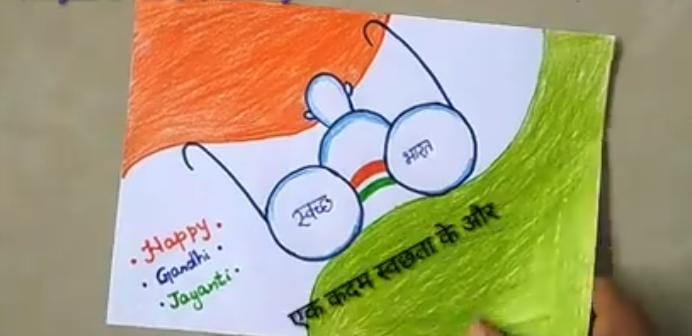 स्वच्छ
भारत
Happy
Gandhi
Jayanti
एक कदम स्वछता के और